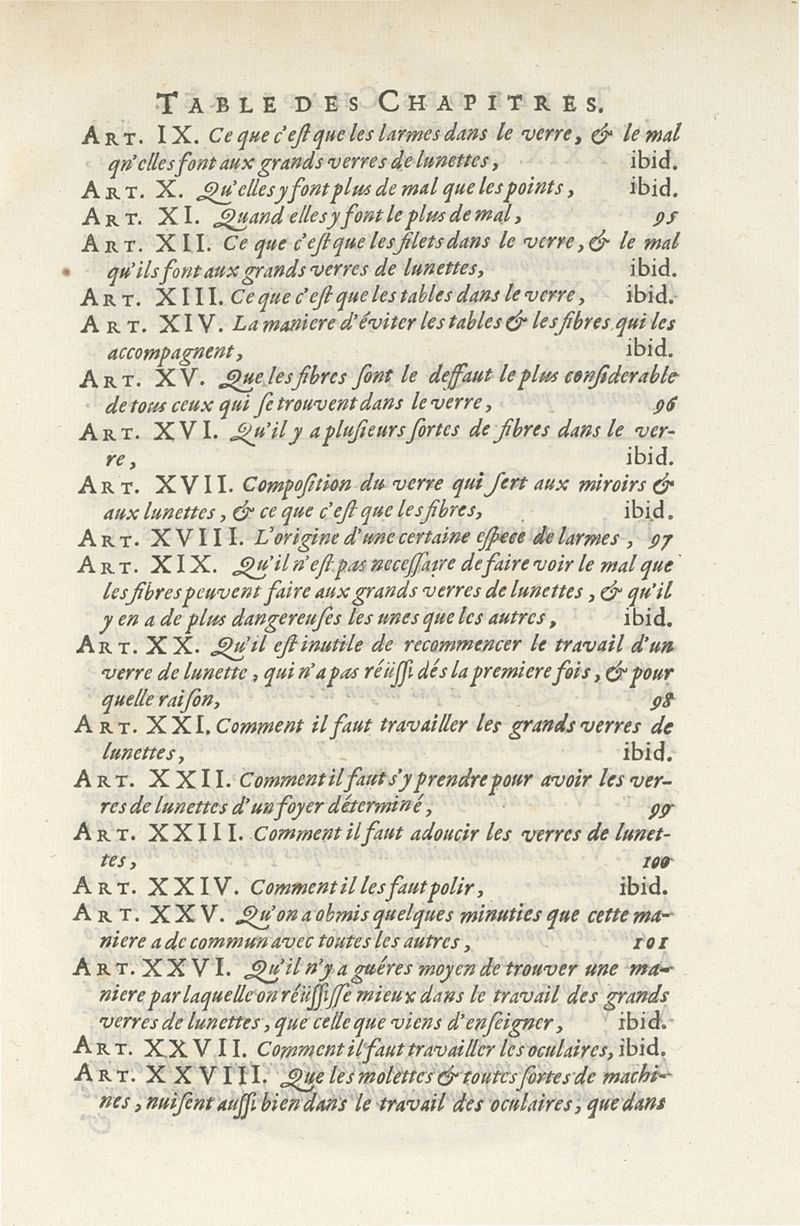 TABLE DES CHAPITRES.
ART. IX. Ce que c'eſt que les larmes dans le verre, & le mal
qn'elles font aux grands verres de lunettes, ibid.
ART. X. Qu'elles y font plus de mal que les points, ibid.
ART. XI. Quand elles y font le plus de mal, 95
ART. XII. Ce que c'eſt que les filets dans le verre, & le mal
qu'ils font aux grands verres de lunettes, ibid.
ART. XIII. Ce que c'eſt que les tables dans le verre, ibid.
ART. XIV. La maniere d'éviter les tables & les fibres qui les
accompagnent, ibid.
ART. XV. Que les fibres ſont le deffaut le plus conſiderable
de tous ceux qui ſe trouvent dans le verre, 96
ART. XVI. Qu'il y a pluſieurs ſortes de fibres dans le ver-
re, ibid.
ART. XVII. Compoſition du verre qui ſert aux miroirs &
aux lunettes, & ce que c'eſt que les fibres, ibid.
ART. XVIII. L'origine d'une certaine eſpece de larmes, 97
ART. XIX. Qu'il n'eſt pas neceſſaire de faire voir le mal que
les fibres peuvent faire aux grands verres de lunettes, & qu'il
y en a de plus dangereuſes les unes que les autres, ibid.
ART. XX. Qu'il eſt inutile de recommencer le travail d'un
verre de lunette, qui n'a pas réüſſi dés la premiere fois, & pour
quelle raiſon, 98
ART. XXI. Comment il faut travailler les grands verres de
lunettes, ibid.
ART. XXII. Comment il faut s'y prendre pour avoir les ver-
res de lunettes d'un foyer déterminé, 99
ART. XXIII. Comment il faut adoucir les verres de lunet-
tes, 100
ART. XXIV. Comment il les faut polir, ibid.
ART. XXV. Qu'on a obmis quelques minuties que cette ma-
niere a de commun avec toutes les autres, 101
ART. XXVI. Qu'il n'y a guéres moyen de trouver une ma-
niere par laquelle on réüſſiſſe mieux dans le travail des grands
verres de lunettes, que celle que viens d'enſeigner, ibid.
ART. XXVII. Comment il faut travailler les oculaires, ibid.
ART. XXVIII. Que les molettes & toutes ſortes de machi-
nes, nuiſent auſſi bien dans le travail des oculaires, que dans